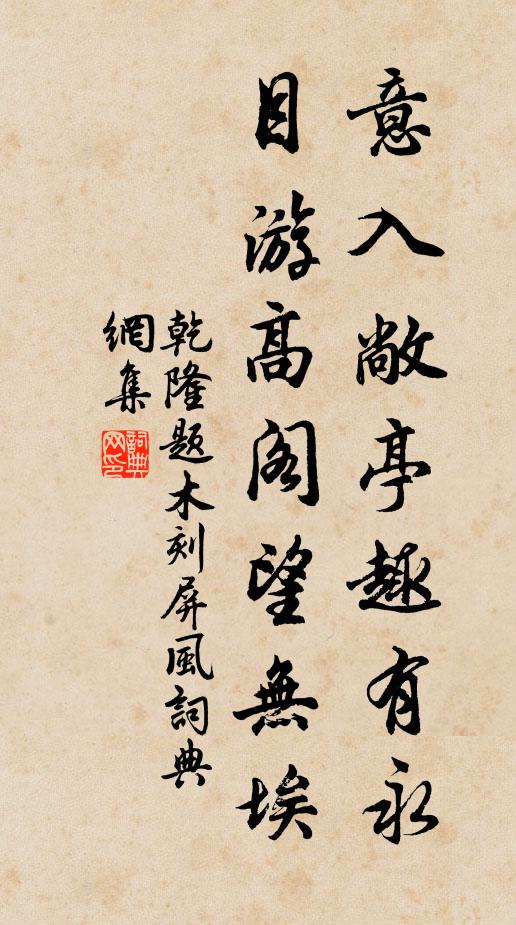 意入敞亭趣有永
目游高阁望無埃
乾隆題木刻屏風詞典
網集
詞典网印